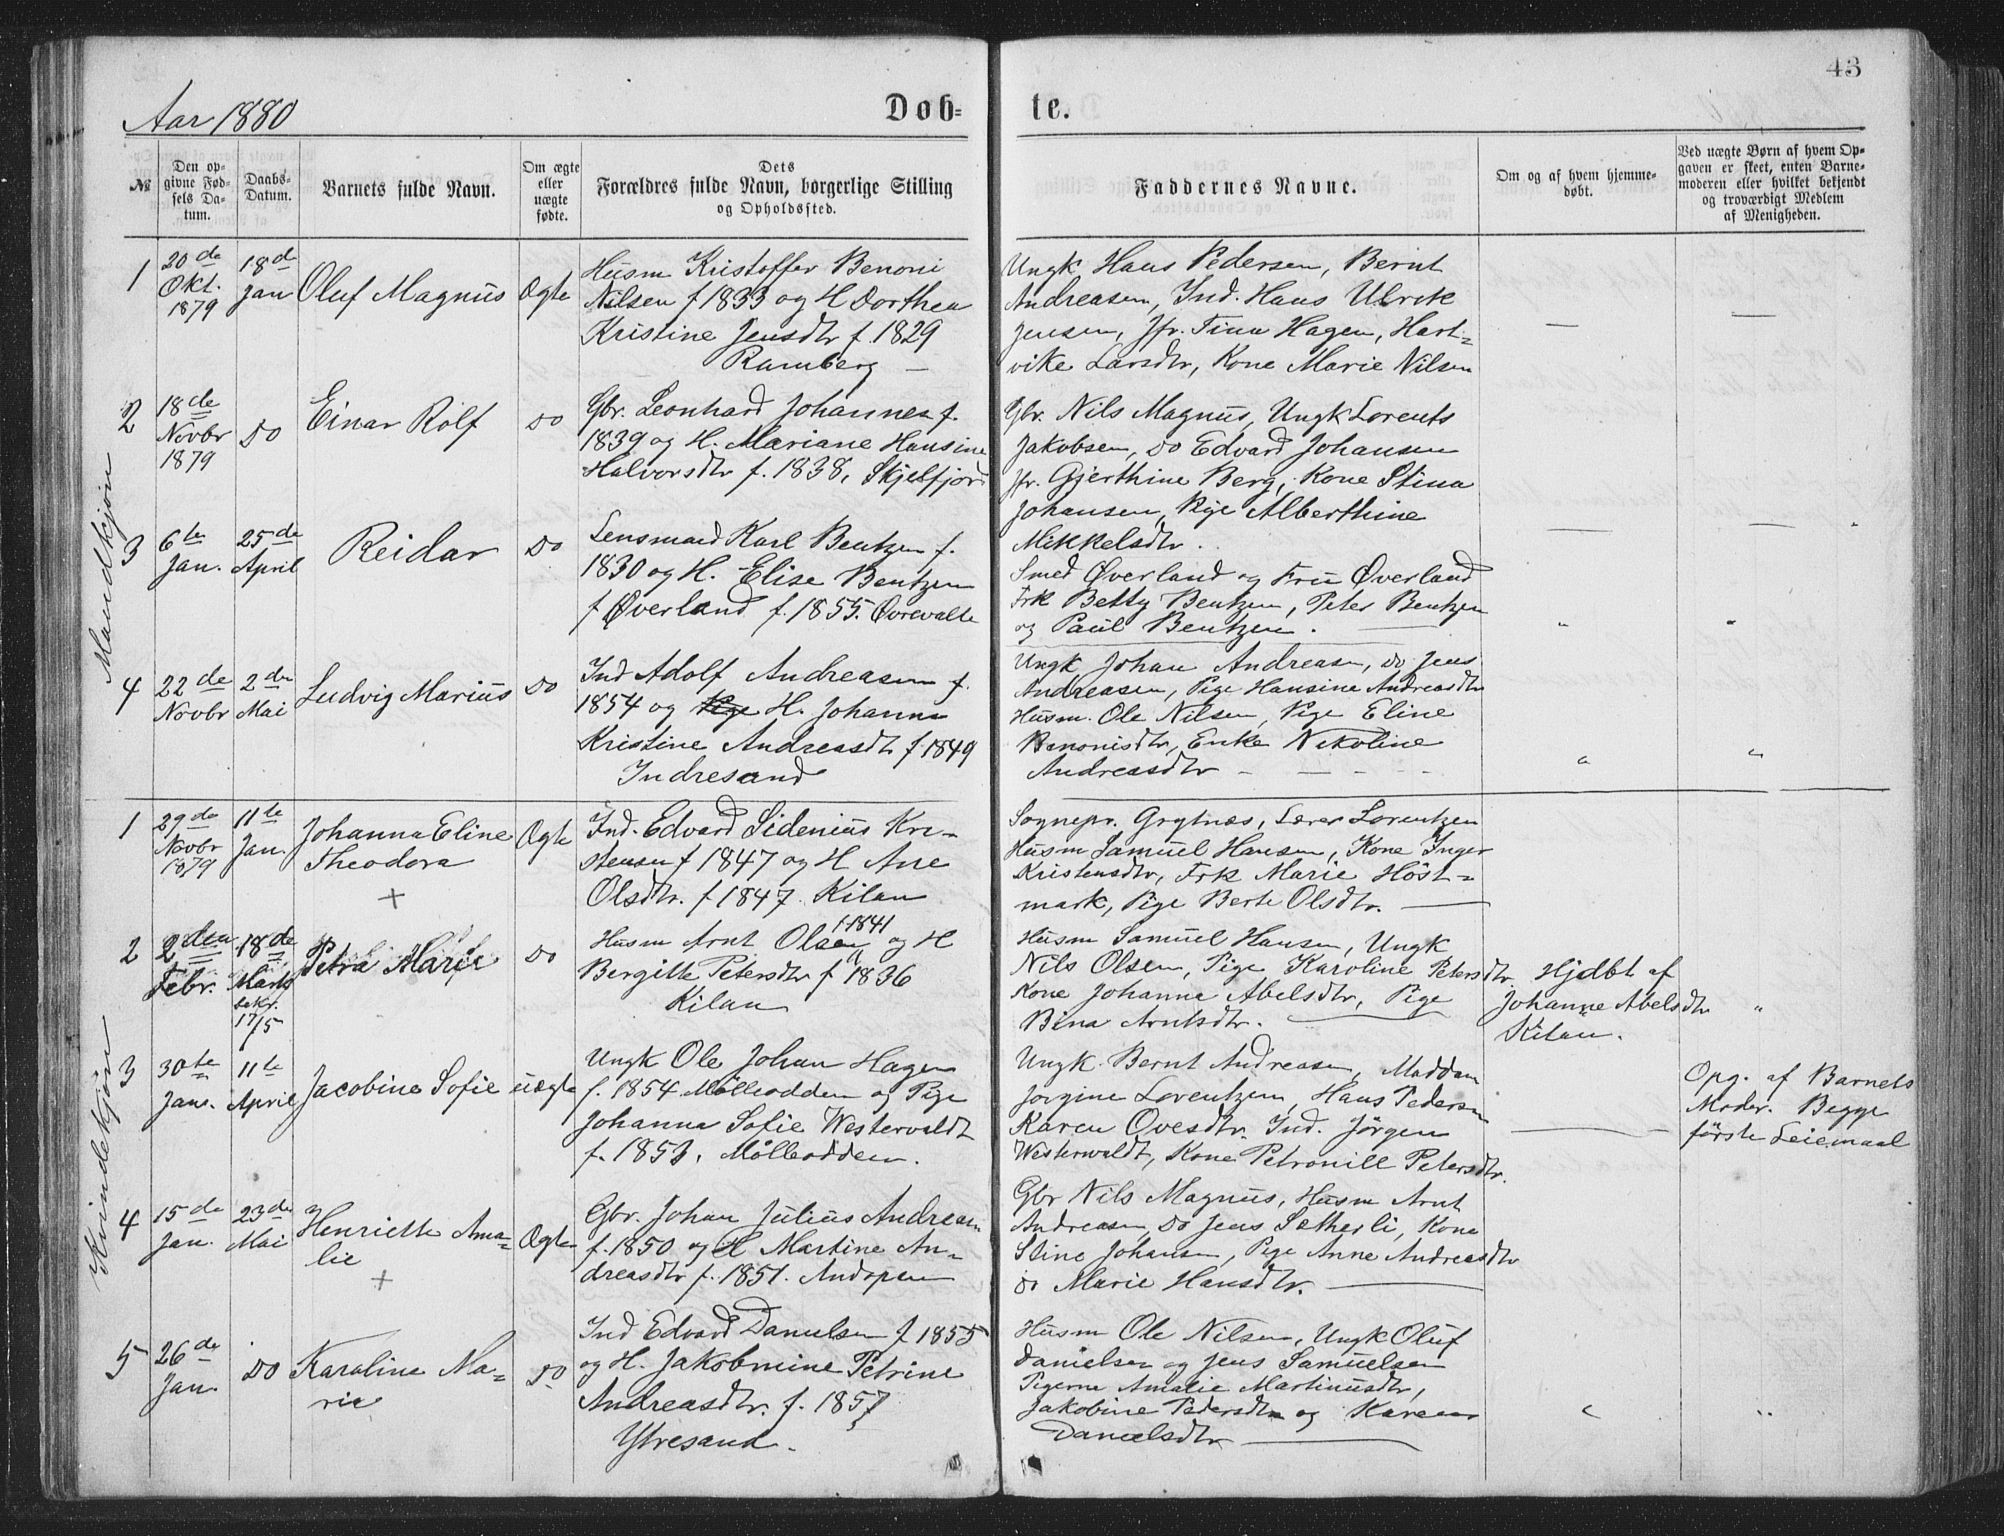 43
Aar 1880
Døb-
te.
№
Den op-
givne Fød-
sels Da-
tum.
Daabs-
Datum.
Barnets fulde Navn.
Om ægte
eller
uægte
fødte.
Dets
Forældres fulde Navn, borgerlige Stilling
og Opholdssted.
Faddernes Navne.
Om og af hvem hjemme-
døbt.
Ved uægte Børn af hvem Op-
gaven er skeet, enten Barne-
moderen eller hvilket bekjendt
og troværdigt Medlem
af Menigheden.
Mandkjøn
1
20de
Okt.
1879
18d
Jan
Oluf Magnus
Ægte
Husm Kristoffer Benoni
Nilsen f 1833 og H Dorthea
Kristine Jensdtr f. 1829
Ramberg –
Ungk Hans Pedersen, Bernt
Andreasen, Ind. Hans Ulrik
Jensen, Jfr. Tina Hagen, Hart-
vike Larsdtr, Kone Marie Nilsen
—
—
2
18de
Novbr
1879
Do
Einar Rolf
Do
Gbr. Leonhard Johannes f.
1839 og H. Mariane Hansine
Halvorsdtr f. 1838, Skjelfjord
Gbr. Nils Magnus, Ungk Lorents
Jakobsen, Do Edvard Johansen
Jfr. Gjerthine Berg, Kone Stina
Johansen, Pige Alberthine
Mikkelsdtr.
—
—
3
6te
Jan.
25de
April
Reidar
Do
Lensmand Karl Bentzen f.
1830 og H. Elise Bentzen
f Øverland f. 1855. Øvrevalte
Smed Øverland og Fru Øverland
Frk Betty Bentzen, Peter Bentzen
og Paul Bentzen. —
"
"
4
22de
Novbr
2den
Mai
Ludvig Marius
Do
Ind Adolf Andreasen f.
1854 og Pige H. Johanna
Kristine Andreasdtr f. 1849
Indresand
Ungk Johan Andreasen, Do Jens
Andreasen, Pige Hansine Andreasdtr
Husm. Ole Nilsen, Pige Eline
Benonisdtr, Enke Nikoline
Andreasdtr – – – – –
"
"
Kvindekjøn
1
29de
Novbr
1879
11te
Jan.
Johanna Eline
Theodora
+
Ægte
Ind. Edvard Sidenius Kri-
stensen f 1847 og H Ane
Olsdtr. f 1847. Kilan
Sognepr. Grytnæs, Lærer Lorentzen
Husm Samuel Hansen, Kone Inger
Kristensdtr, Frk Marie Höst-
mark, Pige Berte Olsdtr. —
2
2den
Febr.
18de
Marts
bekr.
17/5
Petra Marie
Do
Husm Arnt Olsen f 1841 og H
Bergitte Petersdtr f 1836
Kilan
Husm Samuel Hansen, Ungk
Nils Olsen, Pige Karoline Petersdtr
Kone Johanna Abelsdtr, Pige
Bina Arntsdtr. —
Hjdbt af
Johanne Abelsdtr
Kilan.
"
3
30te
Jan.
11te
April
Jacobine Sofie
uægte
Ungk Ole Johan Hagen
f. 1854 Mölleodden og Pige
Johanna Sofie Westervaldt
f. 1853, Mölleodden.
Ungk. Bernt Andreasen, Maddam
Jorgine Lorentzen, Hans Pedersen
Karen Ovesdtr. Ind. Jörgen
Westerwaldt, Kone Petronill Petersdtr.
—
Opg. af Barnets
Moder. Begge
förste Leiemaal
4
15de
Jan.
23de
Mai
Henriette Ama-
lie
+
Ægte
Gbr. Johan Julius Andreasen
f. 1850 og H Martine An-
dreasdtr f. 1851. Andopen
Gbr Nils Magnus, Husm Arnt
Andreasen, Do Jens Sætherli, Kone
Stine Johansen, Pige Anne Andreasdtr
Do Marie Hansdtr. —
5
26de
Jan.
Do
Karoline Ma-
rie
Do
Ind Edvard Danielsen f 1855
og H. Jakobmine Petrine
Andreasdtr. f. 1857
Ytresand.
Husm Ole Nilsen, Ungk Oluf
Danielsen og Jens Samuelsen
Pigerne Amalie Martinusdtr,
Jakobine Pedersdtr og Karen
Danielsdtr —
"
"